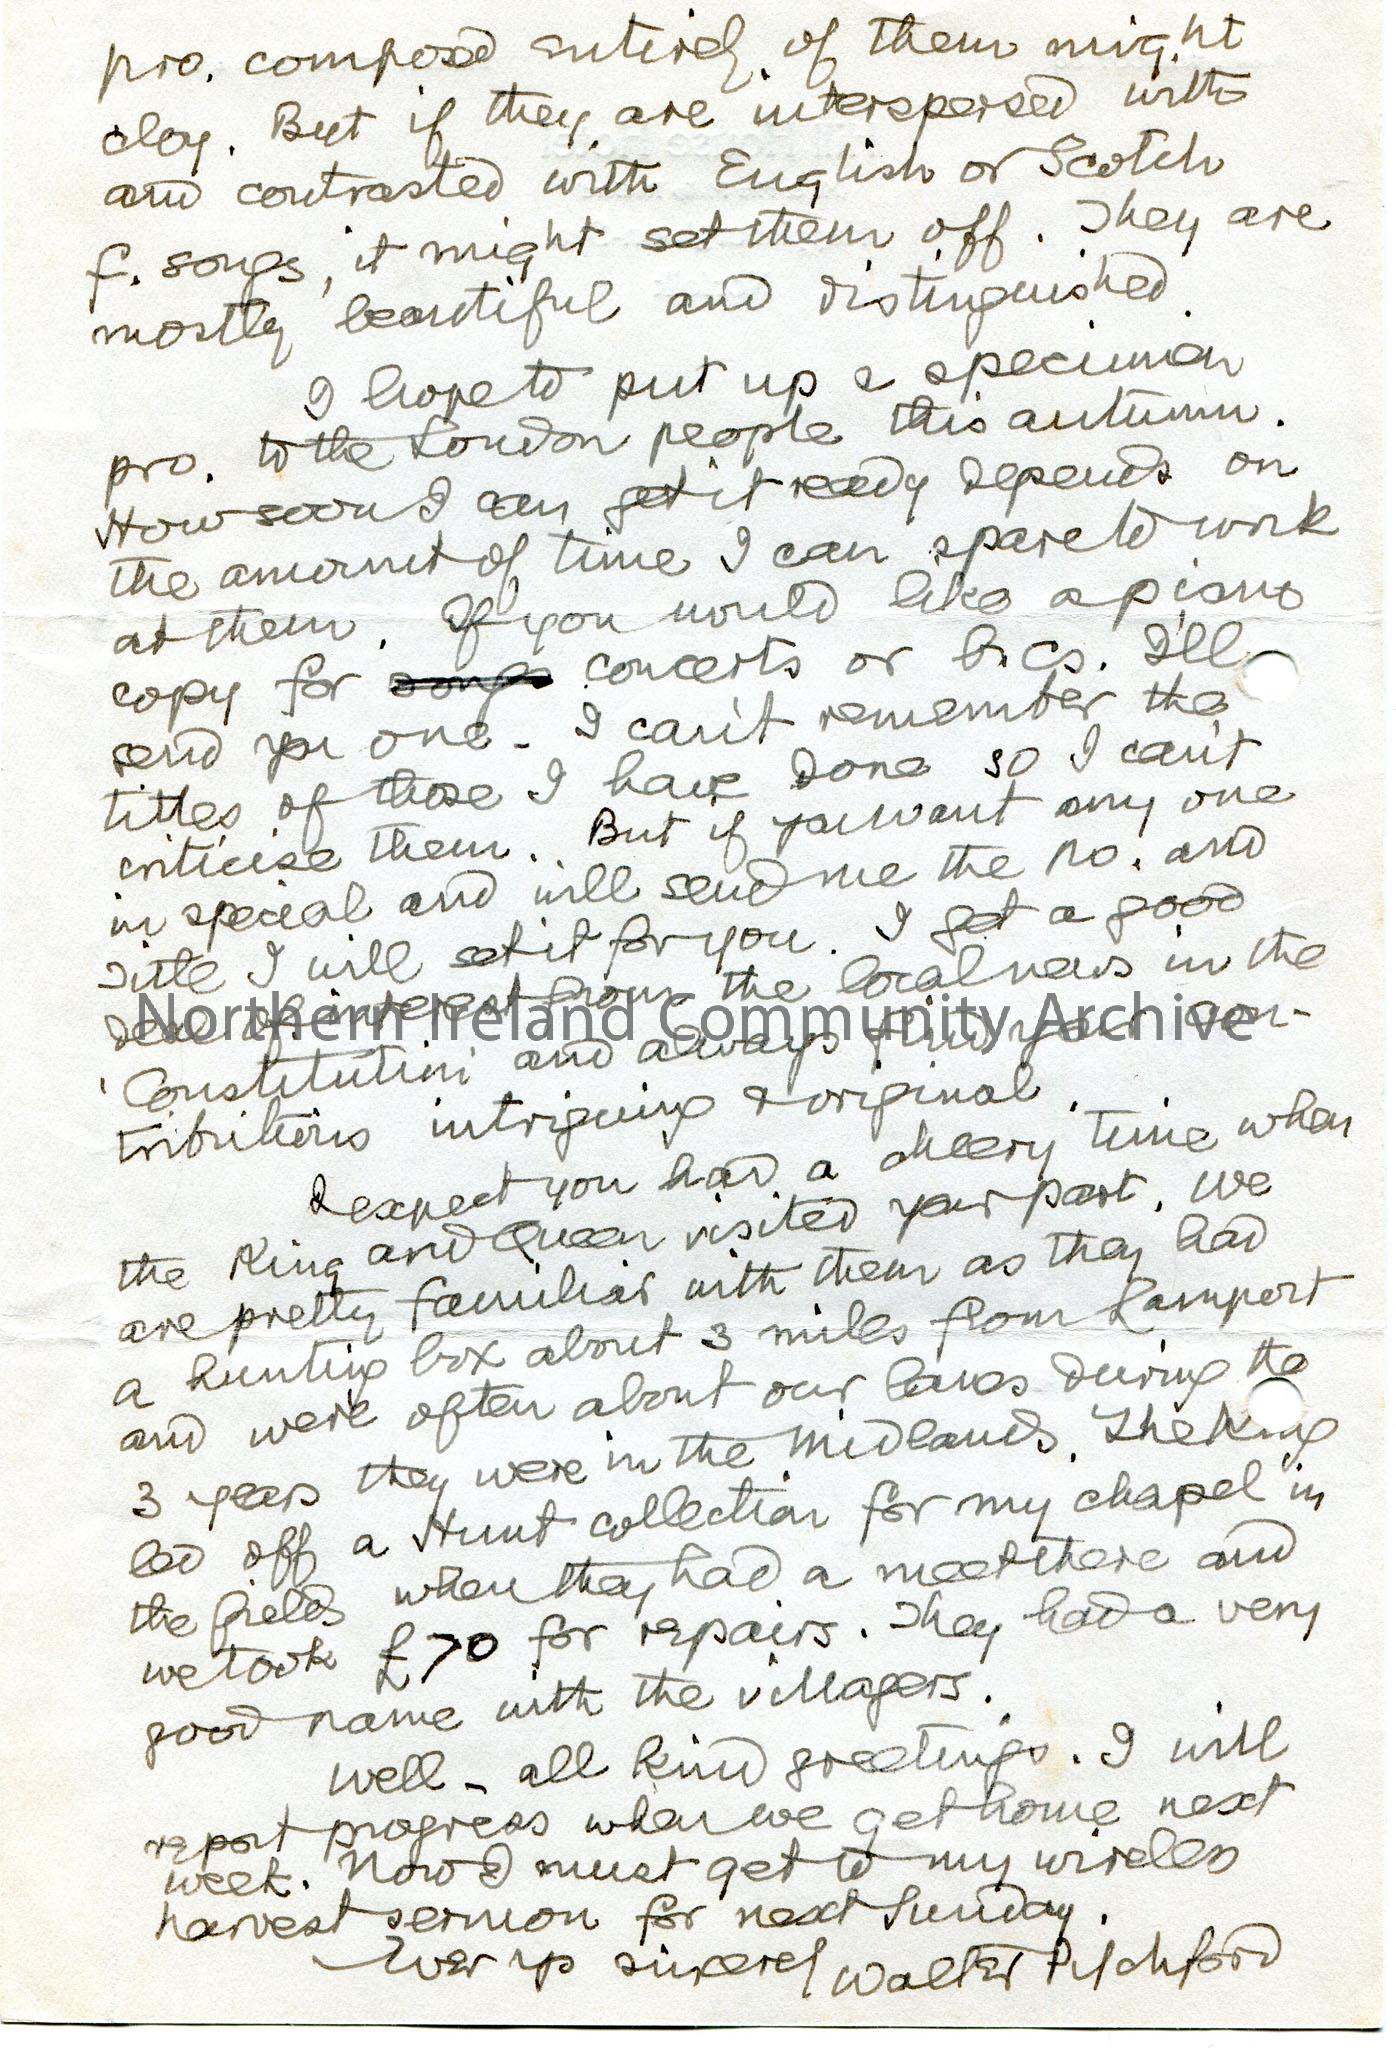 pro. composed entirely of them might
cloy. But if they are interspersed with
and contrasted with English or Scotch
f. songs, it might set them off. They are
mostly beautiful and distinguished.
I hope to put up a specimen
pro. to the London people this autumn.
How soon I can get it ready depends on
the amount of time I can spare to work
at them. If you would like a piano
copy for songs concerts or b.cs. I'll
send you one - I can't remember the
titles of those I have done so I can't
criticise them. But if you want any one
in special and will send me the no. and
title I will set it for you. I get a good
deal of interest from the local news in the
Northern Ireland Community Archive
'Constitution' and always find your con-
tributions intriguing & original.
I expect you had a cheery time when
the King and Queen visited your part. We
are pretty familiar with them as they had
a hunting box about 3 miles from Lamport
and were often about our lanes during the
3 years they were in the Midlands. The King
led off a Hunt collection for my chapel in
the fields when they had a meet there and
we took £70 for repairs. They had a very
good name with the villagers.
Well - all kind greetings. I will
report progress when we get home next
week. Now I must get to my wireless
harvest sermon for next Sunday.
Ever yrs sincerely Walter Pitchford